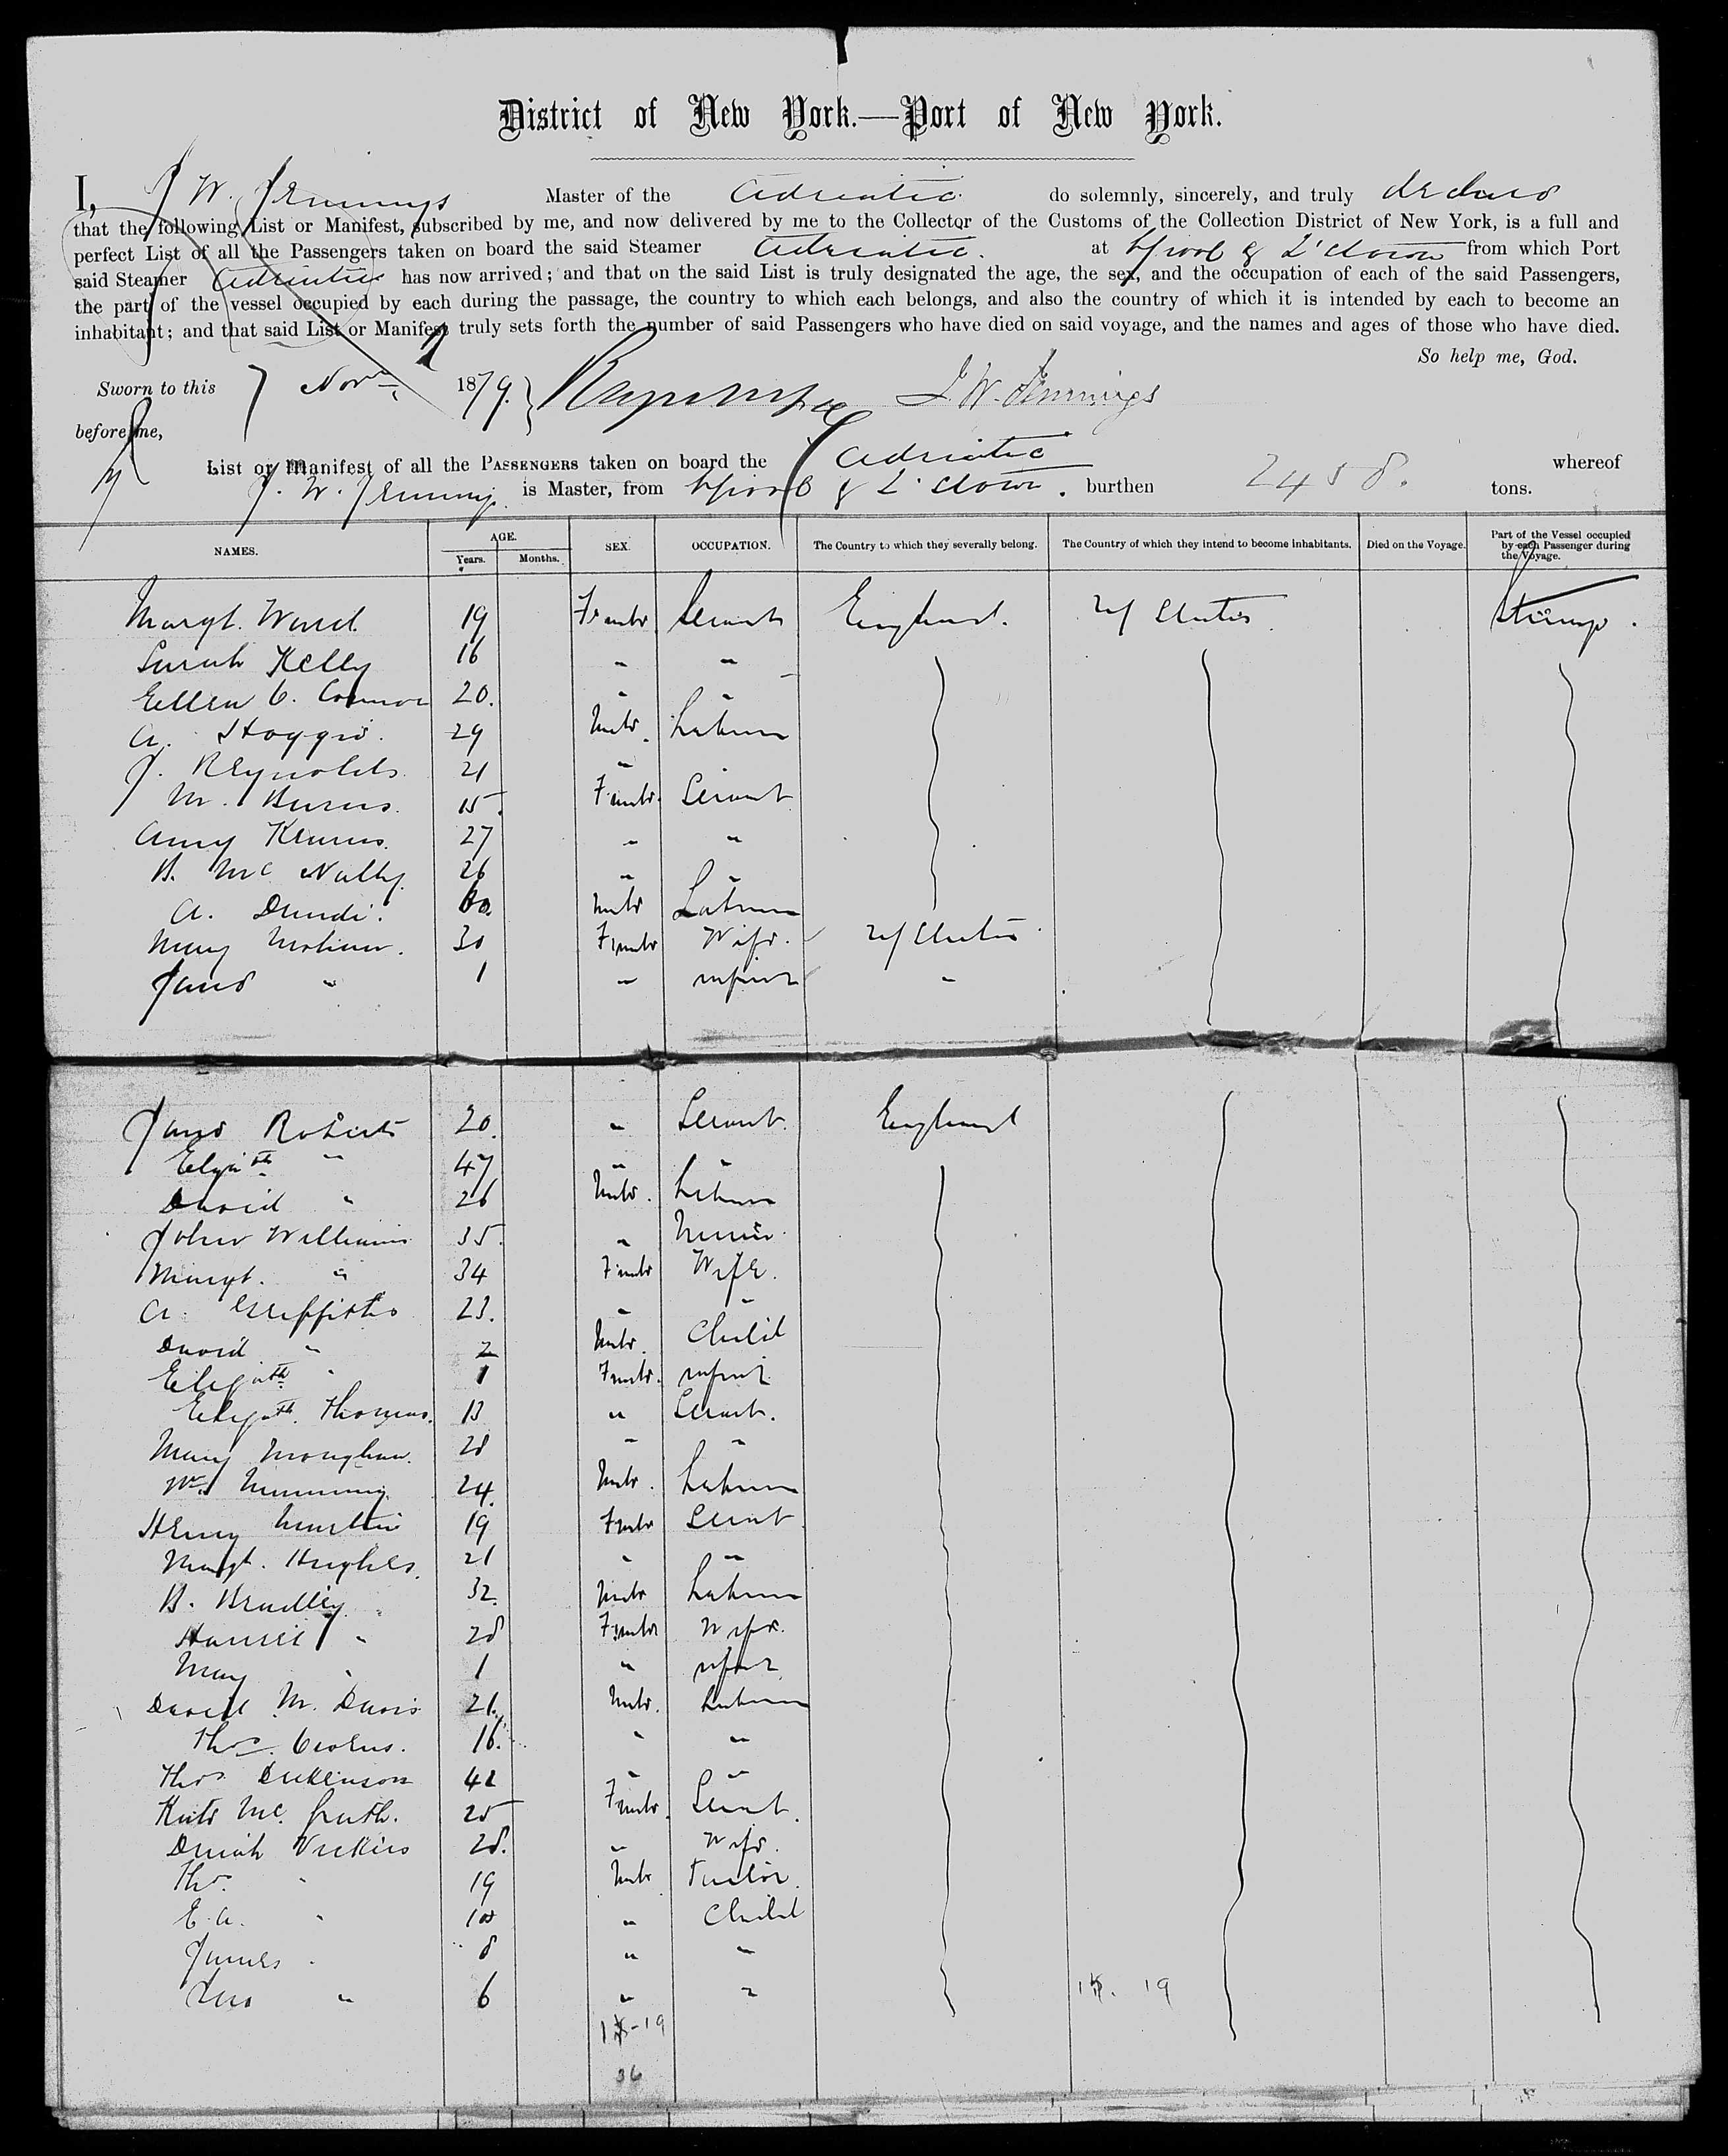 District of New York.—Port of New York.
I, J W. Jennings Master of the Adriatic do solemnly, sincerely, and truly declare
that the following List or Manifest, subscribed by me, and now delivered by me to the Collector of the Customs of the Collection District of New York, is a full and
perfect List of all the Passengers taken on board the said Steamer Adriatic. at L'pool & Q'town from which Port
said Steamer Adriatic has now arrived; and that on the said List is truly designated the age, the sex, and the occupation of each of the said Passengers,
the part of the vessel occupied by each during the passage, the country to which each belongs, and also the country of which it is intended by each to become an
inhabitant; and that said List or Manifest truly sets forth the number of said Passengers who have died on said voyage, and the names and ages of those who have died.
So help me, God.
Sworn to this 7 Novr 1879. J. W. Jennings
before me,
List or Manifest of all the PASSENGERS taken on board the Adriatic whereof
J. W. Jennings is Master, from L'pool & Q'town. burthen 2458. tons.
NAMES. AGE. Years. Months. SEX. OCCUPATION. The Country to which they severally belong. The Country of which they intend to become inhabitants. Died on the Voyage. Part of the Vessel occupied by each Passenger during the Voyage.
Margt. Ward 19 Female Servant England. U States Steerage.
Sarah Kelly 16 " "
Ellen O. Connor 20. " "
A. 29 Male. Labourer
J. Reynolds 21 "
M. Burns. 15 Female. Servant
Amy Kearns. 27 " "
B. Mc Nulty. 26 " "
A. Male Labourer
Mary 30 Female Wife. U States
Jane " 1 " infant "
Jane Roberts 20. " Servant. England
Elizath " 47 " "
David " 26 Male. Labourer
John Williams 35. " Miner.
Margt. " 34 Female Wife.
A. Griffiths 23. " "
David " 2 Male. Child
Elizath " 1 Female. infant
Elizath. Thomas. 13 " Servant.
Mary Monaghan. 28 " "
Wm 24. Male. Labourer
Henry Martin 19 Female Servant
Margt. Hughes. 21 " "
B. Bradley. 32. Male Labourer
" 28 Female Wife.
Mary " 1 " infant
David M. Davis 21. Male. Labourer
Thos. 16. " "
Thos Dickenson 42 " "
Kate Mc. Grath. 25 Female. Servant.
Dinah Vickers 28. " Wife.
Thos. " 19 Male Tailor.
E. A. " 10 " Child
James " 8 " "
" 6 " "
19
19
36